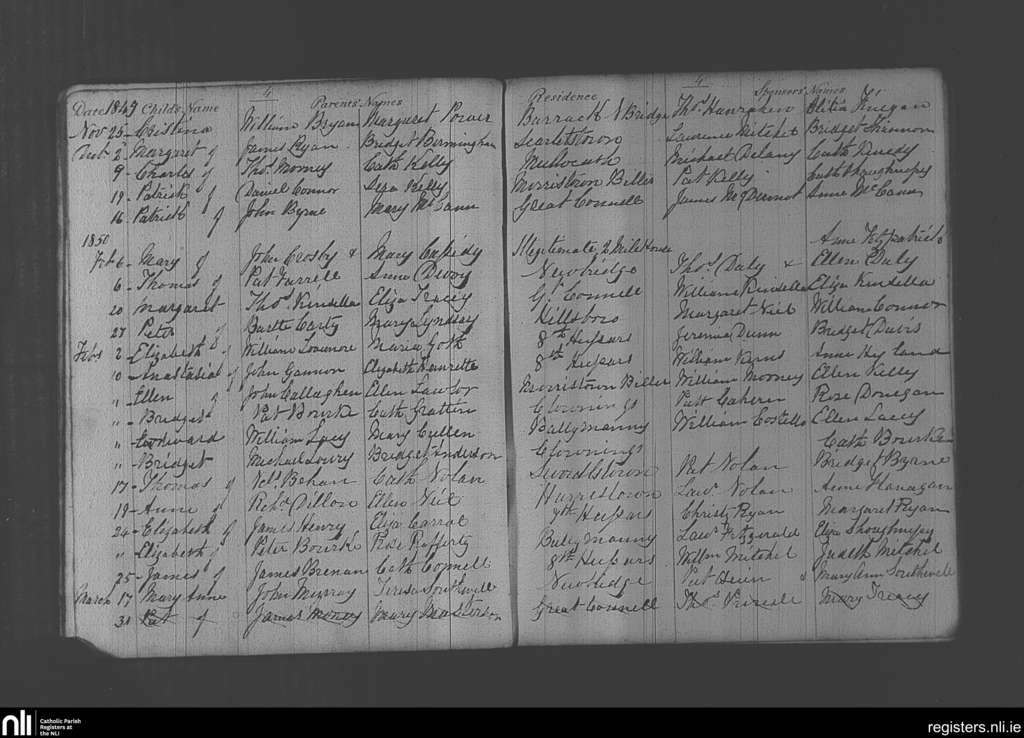 4 4
Date 1849 Childs Name Parents Names Residence Sponsors Names
Nov 25 Cristina William Bryan Margaret Power Barrack & Bridge Thos. Hanrahan
2 Margaret of James Ryan Bridget Birmingham Scarletstown Laurence Mitchel Bridget
9 Charles of Thos. Mooney Cath Kelly Michael Delany Cath
19 Patrick of Daniel Connor Eliza Kelly Morristown Biller Pat Kelly Cath Shaughnessy
16 Patrick of John Byrne Mary McCann Great Connell James McDermot Anne McCann
1850
Feb 6 Mary of John Crosby & Mary Cassidy Illegitimate, 2 Mile House Anne Fitzpatrick
6 Thomas of Pat Farrell Anne Divoy Newbridge Thos. Daly & Ellen Daly
20 Margaret Thos. Kinsella Eliza Tracey Gt. Connell William Kinsella Eliza Kinsella
27 Peter of Bartle Carty Mary Lyndsay Hillsboro Margaret Niel William Connor
Feb 2 Elizabeth of William Maria 8th Hussars Jeremia Dunn Bridget Davis
10 Anastasia of John Gannon Elizabeth 8th Hussars William Anne Hyland
" Ellen of John Callaghan Ellen Lawlor Morristown Biller William Mooney Ellen Kelly
" Bridget Pat Bourke Cath Gratten Clownings Patt Rose Donegan
" Edward William Lacy Mary Cullen Ballymanny William Costello Ellen Lacey
" Bridget Michael Lowry Bridget Anderson Clownings Cath Bourke
17 Thomas of Behan Cath Nolan Swordlestown Pat Nolan Bridget Byrne
19 Anne of Richd. Dillon Ellen Niel Lawr. Nolan Anne Flanagan
24 Elizabeth of James Henry Eliza Carrol Hussars Christy Ryan Margaret Ryan
" Elizabeth of Peter Bourke Rose Rafferty Ballymanny Lawr. Fitzgerald Eliza Shoughnessy
25 James of James Brenan Cath Connell 8th Hussars Willm Mitchel Judith Mitchel
March 17 Mary Anne John Murray Teresa Southwell Newbridge Pat & Mary Ann Southwell
31 Pat of James Mooney Mary Great Connell Thos. Mary Treacey
nli Catholic Parish
Registers at
the NLI
registers.nli.ie